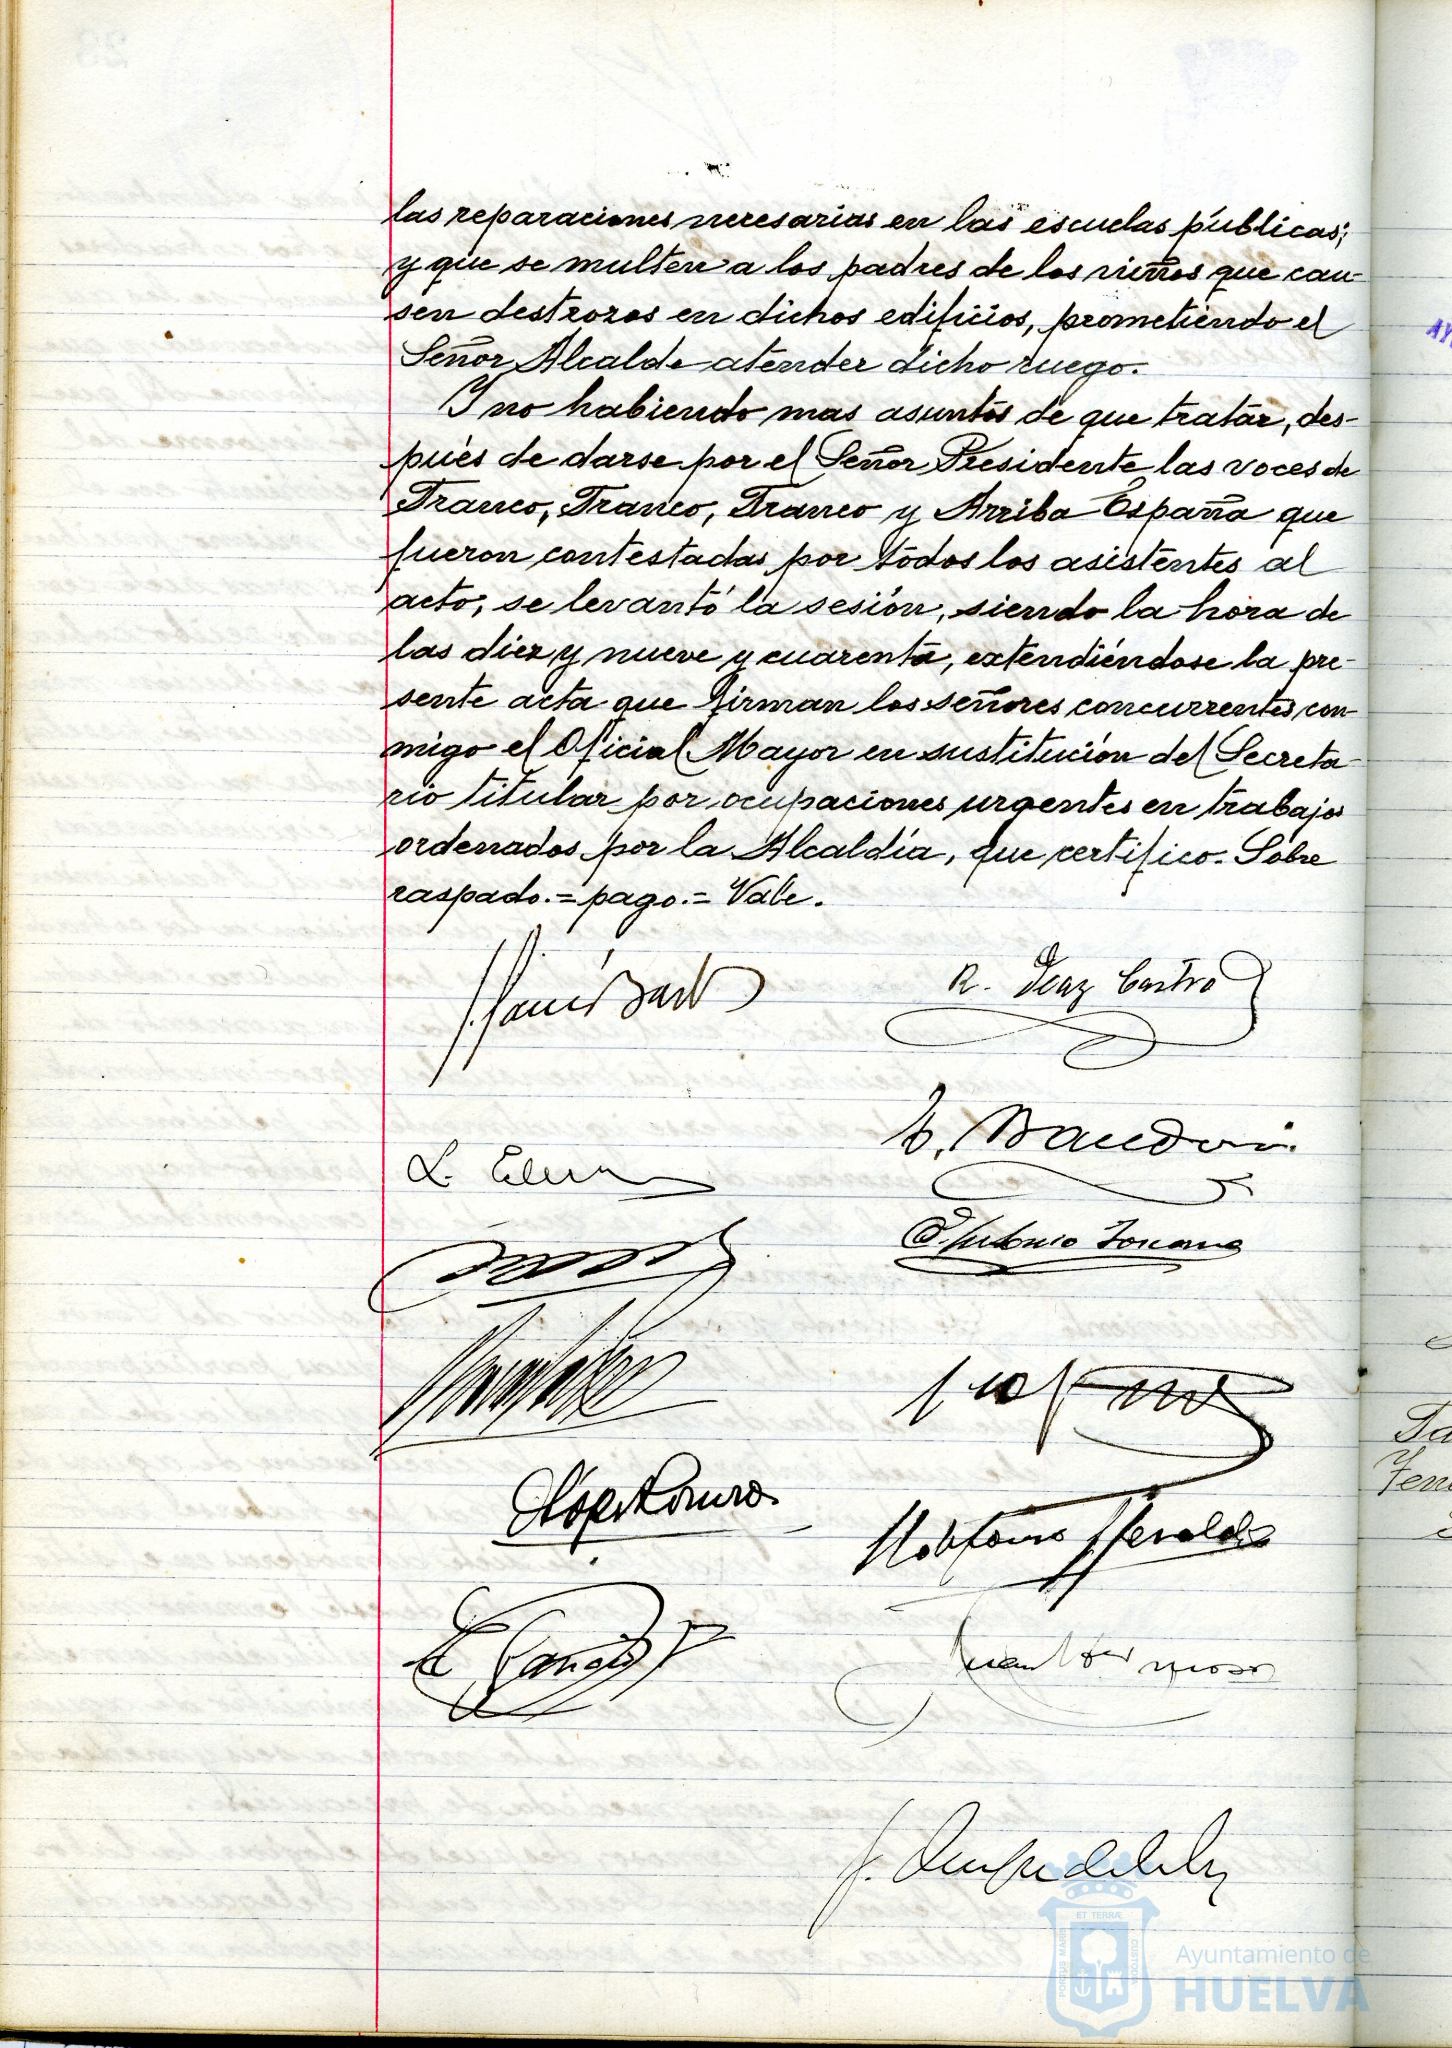 las reparaciones necesarias en las escuelas públicas;
y que se multen a los padres de los niños que cau-
sen destrozos en dichos edificios, prometiendo el
Señor Alcalde atender dicho ruego.
Y no habiendo mas asuntos de que tratar, des-
pués de darse por el Señor Presidente las voces de
Franco, Franco, Franco y Arriba España que
fueron contestadas por todos los asistentes al
acto, se levantó la sesión, siendo la hora de
las diez y nueve y cuarenta, extendiéndose la pre-
sente acta que firman los señores concurrentes con-
migo el Oficial Mayor en sustitución del Secreta-
rio titular por ocupaciones urgentes en trabajos
ordenados por la Alcaldía, que certifico. Sobre
raspado.= pago.= Vale.
R. Diaz Castro
PORTUS MARIS ET TERRÆ CUSTODIA
Ayuntamiento de
HUELVA